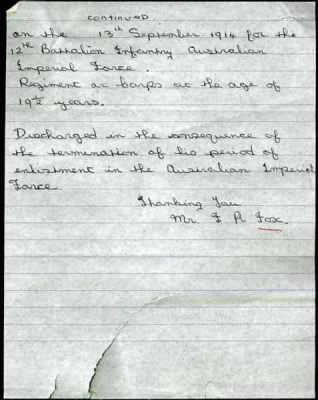 continued
on the 13th September 1914 for the
12th Battalion Infantry Australian
Imperial Force.
Regiment or Corps at the age of
19½ years.
Discharged in the consequence of
the termination of his period of
enlistment in the Australian Imperial
Force
Thanking You
Mr. F A Fox.